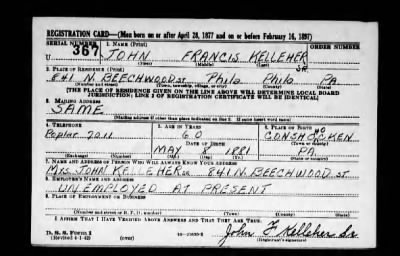 REGISTRATION CARD—(Men born on or after April 28, 1877 and on or before February 16, 1897)
SERIAL NUMBER 1. NAME (Print) ORDER NUMBER
U 367 JOHN FRANCIS KELLEHER SR
(First) (Middle) (Last)
2. PLACE OF RESIDENCE (Print)
841 N. BEECHWOOD ST Phila Phila PA
(Number and street) (Town, township, village, or city) (County) (State)
[THE PLACE OF RESIDENCE GIVEN ON THE LINE ABOVE WILL DETERMINE LOCAL BOARD
JURISDICTION; LINE 2 OF REGISTRATION CERTIFICATE WILL BE IDENTICAL]
3. MAILING ADDRESS
SAME
[Mailing address if other than place indicated on line 2. If same insert word same]
4. TELEPHONE 5. AGE IN YEARS 6. PLACE OF BIRTH
Poplar 2011 60 CONSHOHOCKEN
DATE OF BIRTH (Town or county)
MAY 8 1881 PA.
(Exchange) (Number) (Mo.) (Day) (Yr.) (State or country)
7. NAME AND ADDRESS OF PERSON WHO WILL ALWAYS KNOW YOUR ADDRESS
MRS. JOHN KELLEHER SR 841 N. BEECHWOOD ST.
8. EMPLOYER'S NAME AND ADDRESS
UNEMPLOYED AT PRESENT
9. PLACE OF EMPLOYMENT OR BUSINESS
(Number and street or R. F. D. number) (Town) (County) (State)
I AFFIRM THAT I HAVE VERIFIED ABOVE ANSWERS AND THAT THEY ARE TRUE.
D. S. S. FORM 1
(Revised 4-1-42) (over) John F Kelleher Sr
(Registrant's signature)